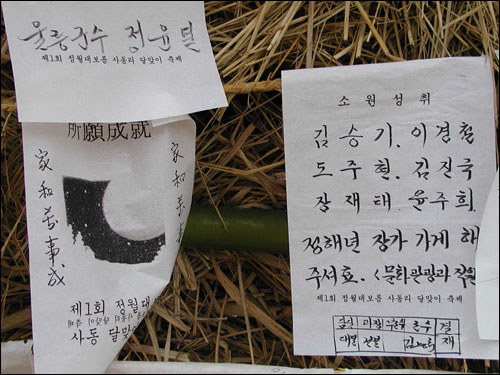 울릉군수 정윤열
제1회 정월대보름 사동리 달맞이 축제
所願成就
家和萬事成
家和萬事
제1회 정월대
사동 달맞
소원성취
김승기. 이경철
도주현. 김진국
장재태. 윤주희
정해년 장가 가게 해
주서요. <문화관광과 직원
제1회 정월대보름 사동리 달맞이 축제
과장 군수 결
대결 전결 재